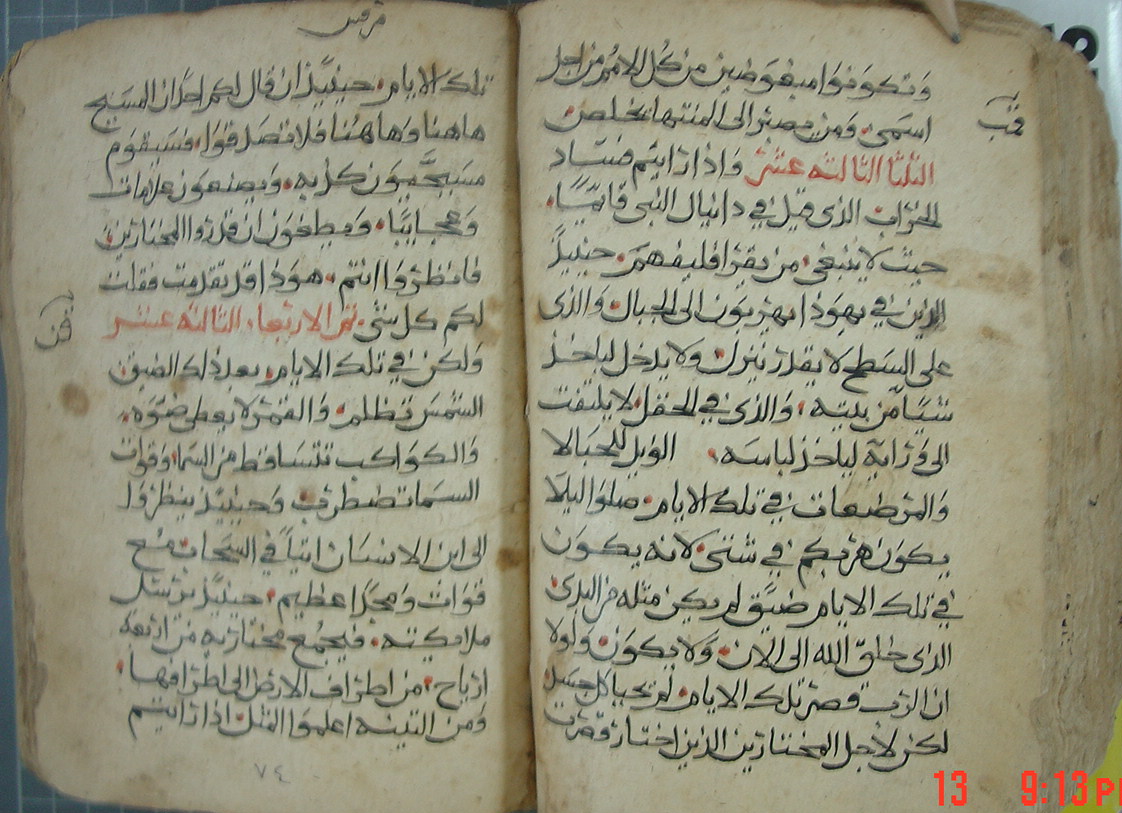 وتكونوا مبغوضين من كل الامم من اجل
اسمى ومن يصبر الى المنتها يخلص
قب
الثلثا الثالثه عشر واذا رايتم فساد
الخراب الذى قيل في دانيال النبى قايمًا
حيث لا ينبغى من يقرا فليفهم حينيذً
الذين في يهوذا يهربون الى الجبال والذى
على السطح لا يقدر ينزل ولا يدخل لياخذ
شيًا من بيته والذى في الحقل لا يلتفت
الى ورايه لياخذ لباسه الويل للحبالا
والمرضعات في تلك الايام صلوا ليلا
يكون هربكم في شتى لانه يكون
في تلك الايام ضيق لم يكن مثله من البدى
الذى خلق الله الى الان ولا يكون ولولا
ان الرب قصر تلك الايام لم يحيا كل جسد
لكن لاجل المختارين الذين اختار قصرت
مرقس
تلك الايام حينيذً ان قال لكم احدًا ان المسيح
هاهنا وهاهنا فلا تصدقوا فسيقوم
مسيحيون كذبه ويصنعون علامات
وعجايبًا ويطغون ان قدروا المختارين
فانظروا انتم هوذا قد تقدمت فقلت
لكم كل شى تمر الاربعا الثالثه عشر
قن
ولكن في تلك الايام بعد ذلك الضيق
الشمس تظلم والقمر لا يعطى ضوه
والكواكب تتساقط من السما وقوات
السمات تضطرب وحينيذً ينظروا
الى ابن الانسان اتياً في السحاب مع
قوات ومجدًا عظيم حينيذً يرسل
ملايكته فيجمع مختاريه من اربعة
ارياح من اطراف الارض الى اطرافها
ومن التينه اعلموا المثل اذا رايتم
٧٤
13 9:13 P